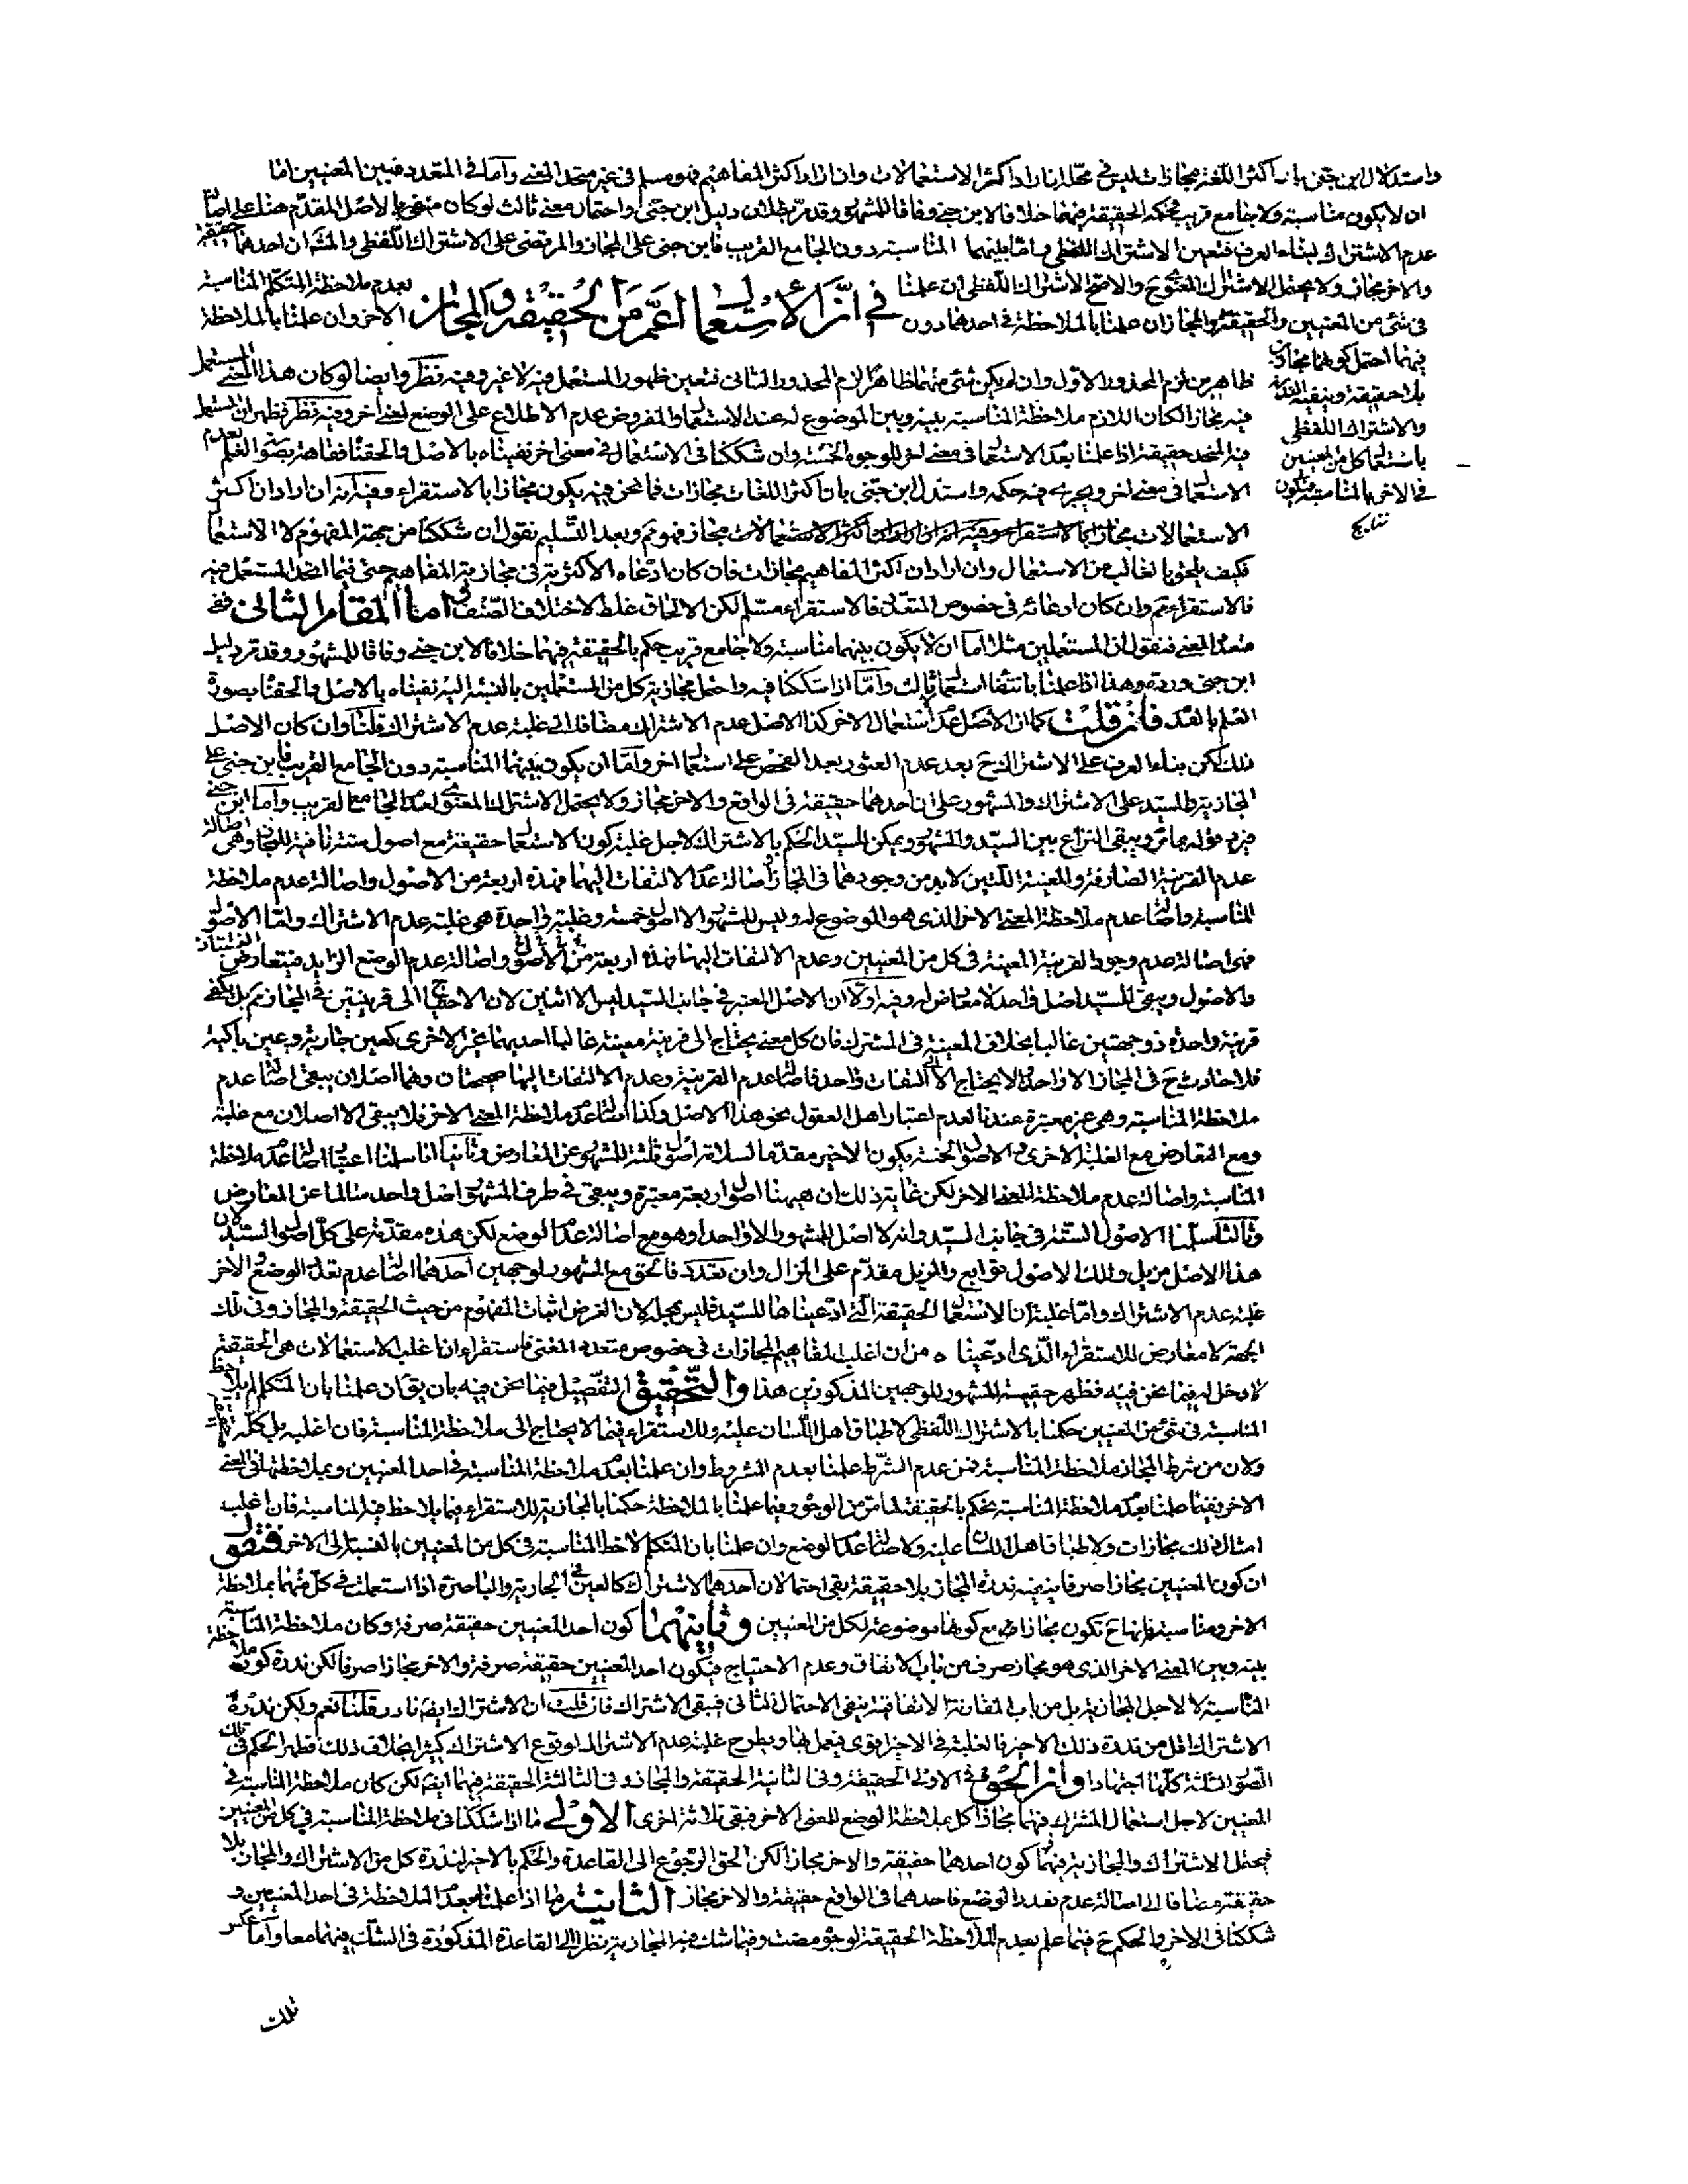 واستدلال ابن جنى بان اكثر اللغة مجازات ليس فى محله ان اراد اكثر الاستعمالات وان اراد اكثر المفاهيم فهو مسلم فى غير متحد المعنى وامّا فى المتعدد فبين المعنيين امّا
ان لا يكون مناسبة ولا جامع قريب فيحكم الحقيقة فيهما خلافا لابن جنى وفاقا للمشهور وقد مرّ بطلان دليل ابن جنى واحتمال معنى ثالث لو كان منفى بالاصل المقدّم هنا على اصالة
عدم الاشتراك لبناء العرف فتعين الاشتراك اللفظى وامّا بينهما المناسبة دون الجامع القريب فابن جنى على المجاز والمرتضى على الاشتراك اللفظى والمش ان احدهما حقيقة
والاخر مجاز ولا يحتمل الاشتراك المعنوى ح والاصح الاشتراك اللفظى ان علمنا
بعدم ملاحظة المتكلم المناسبة
فى انّ الاستعمال اعمّ من الحقيقة والمجاز
فى شئ من المعنيين والحقيقة والمجاز ان علمنا بالملاحظة فى احدهما دون
الاخر وان علمنا بالملاحظة
فيهما احتمل كونهما مجازين
بلا حقيقة وينفيه الندرة
والاشتراك اللفظى
باستعمال كل من المعنيين
فى الاخر بالمناسبة فيكون
ظاهر من لزم المحذور الاول وان لم يكن شئ منهما ظاهرا لزم المحذور الثانى فتعين ظهور المستعمل فيه لا غير وفيه نظر وايضا لو كان هذا المعنى المستعمل
فيه مجازا لكان اللازم ملاحظة المناسبة بينه وبين الموضوع له عند الاستعمال والمفروض عدم الاطلاع على الوضع لمعنى اخر وفيه نظر فظهر ان المستعمل
فيه المتحد حقيقة اذا علمنا بعدم الاستعمال فى معنى اخر للوجوه الخمسة وان شككنا فى الاستعمال فى معنى اخر نفيناه بالاصل والحقنا بصورة العلم بعدم
الاستعمال فى معنى اخر ويجرى فيه حكمه واستدل ابن جنى بان اكثر اللغات مجازات فما نحن فيه يكون مجازا بالاستقراء وفيه انه ان اراد ان اكثر
الاستعمالات مجاز فهو ثم وبعد التسليم نقول ان شككنا من جهة المفهوم لا الاستعمال
فكيف يلحق بالغالب من الاستعمال وان اراد ان اكثر المفاهيم مجازات فان كان ادّعاء الاكثرية فى مجازية المفاهيم حتى فيما اتحد المستعمل فيه
فالاستقراء ثم وان كان ادعائه فى خصوص المتعدّد فالاستقراء مسلم لكن الالحاق غلط لاختلاف الصّنف وامّا المقام الثانى ففى
متعدّد المعنى فنقول ان المستعملين مثلا امّا ان لا يكون بينهما مناسبة ولا جامع قريب حكم بالحقيقة فيهما خلافا لابن جنى وفاقا للمشهور وقد مرّ دليل
ابن جنى وردّه وهذا اذا علمنا بانتفاء استعمال ثالث وامّا اذا شككنا فيه واحتمل مجازية كل من المستعملين بالنسبة اليه نفيناه بالاصل والحقنا بصورة
العلم بالعدم فان قلت كما ان الاصل عدم استعمال الاخر كذا الاصل عدم الاشتراك مضافا الى غلبة عدم الاشتراك قلنا وان كان الاصل
ذلك لكن بناء العرف على الاشتراك ح بعد عدم العثور بعد الفحص على استعمال اخر وامّا ان يكون بينهما المناسبة دون الجامع القريب فابن جنى على
المجازية والسيّد على الاشتراك والمشهور على ان احدهما حقيقة فى الواقع والاخر مجاز ولا يحتمل الاشتراك المعنوى لعدم الجامع القريب وامّا ابن جنى
فيردّ قوله بما مرّ ويبقى النزاع بين السيّد والمشهور ويمكن للسيّد الحكم بالاشتراك لاجل غلبة كون الاستعمال حقيقة مع اصول ستة نافية للمجاز وهى اصالة
عدم القرينة الصارفة والمعينة اللتين لا بد من وجودهما فى المجاز واصالة عدم الالتفات اليهما فهذه اربعة من الاصول واصالة عدم ملاحظة
المناسبة واصالة عدم ملاحظة المعنى الاخر الذى هو الموضوع له وليس للمشهور الا اصول خمسة وغلبة واحدة هى غلبة عدم الاشتراك وامّا الاصول
فهى اصالة عدم وجود القرينة المعينة فى كل من المعنيين وعدم الالتفات اليهما فهذه اربعة من الاصول واصالة عدم الوضع الزايد فيتعارض الغلبتان
والاصول ويبقى للسيّد اصل واحد لا معارض له وفيه اولا ان الاصل المعتبر فى جانب السيّد ليس الا اثنين لان الاحتياج الى قرينتين فى المجاز ثم بل يكفى
قرينة واحدة ذو جهتين غالبا بخلاف المعينة فى المشترك فان كل معنى يحتاج الى قرينة معينة غالبا احديهما غير الاخرى كعين جارية وعين باكية
فلا حادث ح فى المجاز الا واحد ولا يحتاج الا الى التفات واحد فاصالة عدم القرينة وعدم الالتفات اليها صحيحتان وهما اصلان يبقى اصالة عدم
ملاحظة المناسبة وهى غير معتبرة عندنا لعدم اعتبار اهل العقول بنحو هذا الاصل وكذا اصالة عدم ملاحظة المعنى الاخر فلا يبقى الا اصلان مع غلبة
ومع التعارض مع الغلبة الاخرى والاصول الخمسة يكون الاخير مقدّما لسلامة اصول ثلثة للمشهور عن المعارض وثانيا انا سلمنا اعتبار اصالة عدم ملاحظة
المناسبة واصالة عدم ملاحظة المعنى الاخر لكن غاية ذلك ان هيهنا اصول اربعة معتبرة ويبقى فى طرف المشهور اصل واحد سالما عن المعارض
وثالثا سلّمنا الاصول الستّة فى جانب السيّد وانه لا اصل للمشهور الا واحدا وهو مع اصالة عدم الوضع لكن هذه مقدّمة على كلّ اصول السيّد لان
هذا الاصل مزيل وتلك الاصول توابع والمزيل مقدّم على المزال وان تعدّد فالحق مع المشهور لوجهين احدهما اصالة عدم تعدّد الوضع والاخر
غلبة عدم الاشتراك وامّا غلبة ان الاستعمال الحقيقة التى ادّعيناها للسيّد فليس بمحله لان الغرض اثبات المفهوم من حيث الحقيقة والمجاز وفى تلك
الجهة لا معارض للاستقراء الّذى ادعيناه من ان اغلب المفاهيم المجازات فى خصوص متعدد المعنى فاستقراء ان اغلب الاستعمالات هى الحقيقة
لا دخل له فيما نحن فيه فظهر حقيّة المشهور للوجهين المذكورين هذا والتّحقيق التفصيل فيما نحن فيه بان يق ان علمنا بان المتكلم لم يلاحظ
المناسبة فى شئ من المعنيين حكمنا بالاشتراك اللفظى لاطباق اهل اللّسان عليه وللاستقراء فيما لا يحتاج الى ملاحظة المناسبة فان اغلبه بل كلّه
ولان من شرط المجاز ملاحظة المناسبة فمن عدم الشّرط علمنا بعدم المشروط وان علمنا بعدم ملاحظة المناسبة فى احد المعنيين وبملاحظتها فى المعنى
الاخر ففيما علمنا بعدم ملاحظة المناسبة يحكم بالحقيقة لما مرّ من الوجوه وفيما علمنا بالملاحظة حكمنا بالمجازية للاستقراء فيما يلاحظ فيه المناسبة فان اغلب
امثال ذلك مجازات ولاطباق اهل اللسان عليه ولاصالة عدم الوضع وان علمنا بان المتكلم لاحظ المناسبة فى كل من المعنيين بالنسبة الى الاخر فنقول
ان كون المعنيين مجازا صرفا ينفيه ندرة المجاز بلا حقيقة بقى احتمالان احدهما الاشتراك كالعين فى الجارية والباصرة اذا استعملت فى كلّ منهما بملاحظة
الاخر ومناسبة فانها ح تكون مجازا مع كونها موضوعة لكل من المعنيين وثانيهما كون احد المعنيين حقيقة صرفة وكان ملاحظة المناسبة
بينه وبين المعنى الاخر الذى هو مجاز صرف من باب الاتفاق وعدم الاحتياج فيكون احد المعنيين حقيقة صرفة والاخر مجازا صرفا لكن ندرة كون ملاحظة
المناسبة لا لاجل المجازية بل من باب المقارنة الاتفاقية ينفى الاحتمال الثانى فيبقى الاشتراك فان قلت ان الاشتراك ايضا نادر قلنا نعم ولكن ندرة
الاشتراك اقل من ندرة ذلك الاخير فالغلبة فى الاخير اقوى فيعمل بها ويطرح غلبة عدم الاشتراك لوقوع الاشتراك كثيرا بخلاف ذلك فظهر الحكم فى تلك
الصّور الثلثة كلّها اجتهادا وانّ الحق فى الاولى الحقيقة وفى الثانية الحقيقة والمجاز وفى الثالثة الحقيقة فيهما ايضا لكن كان ملاحظة المناسبة فى
المعنيين لاجل استعمال المشترك فيهما مجازا كل بملاحظة الوضع للمعنى الاخر فبقى ثلاثة اخرى الاولى ما اذا شككنا فى ملاحظة المناسبة فى كل من المعنيين
فيحتمل الاشتراك والمجازية فيهما وكون احدهما حقيقة والاخر مجازا لكن الحق الرّجوع الى القاعدة والحكم بالاخير لندرة كل من الاشتراك والمجاز بلا
حقيقة مضافا الى اصالة عدم تعدد الوضع فاحدهما فى الواقع حقيقة والاخر مجاز الثانية ما اذا علمنا بعدم الملاحظة فى احد المعنيين و
شككنا فى الاخر والحكم ح فيما علم بعدم الملاحظة الحقيقة لوجوه مضت وفيما شك فيه المجازية نظرا الى القاعدة المذكورة فى الشك فيهما معا وامّا عكس
تلك